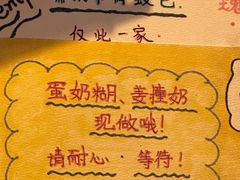 仅此一家.
蛋奶糊、姜撞奶
现做哦!
请耐心·等待!